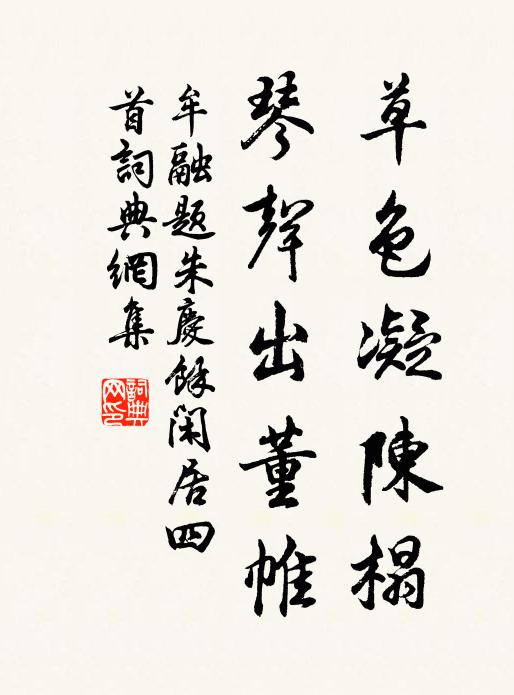 草色凝陳榻
琴聲出董帷
牟融題朱慶餘閑居四
首詞典網集
詞典網印